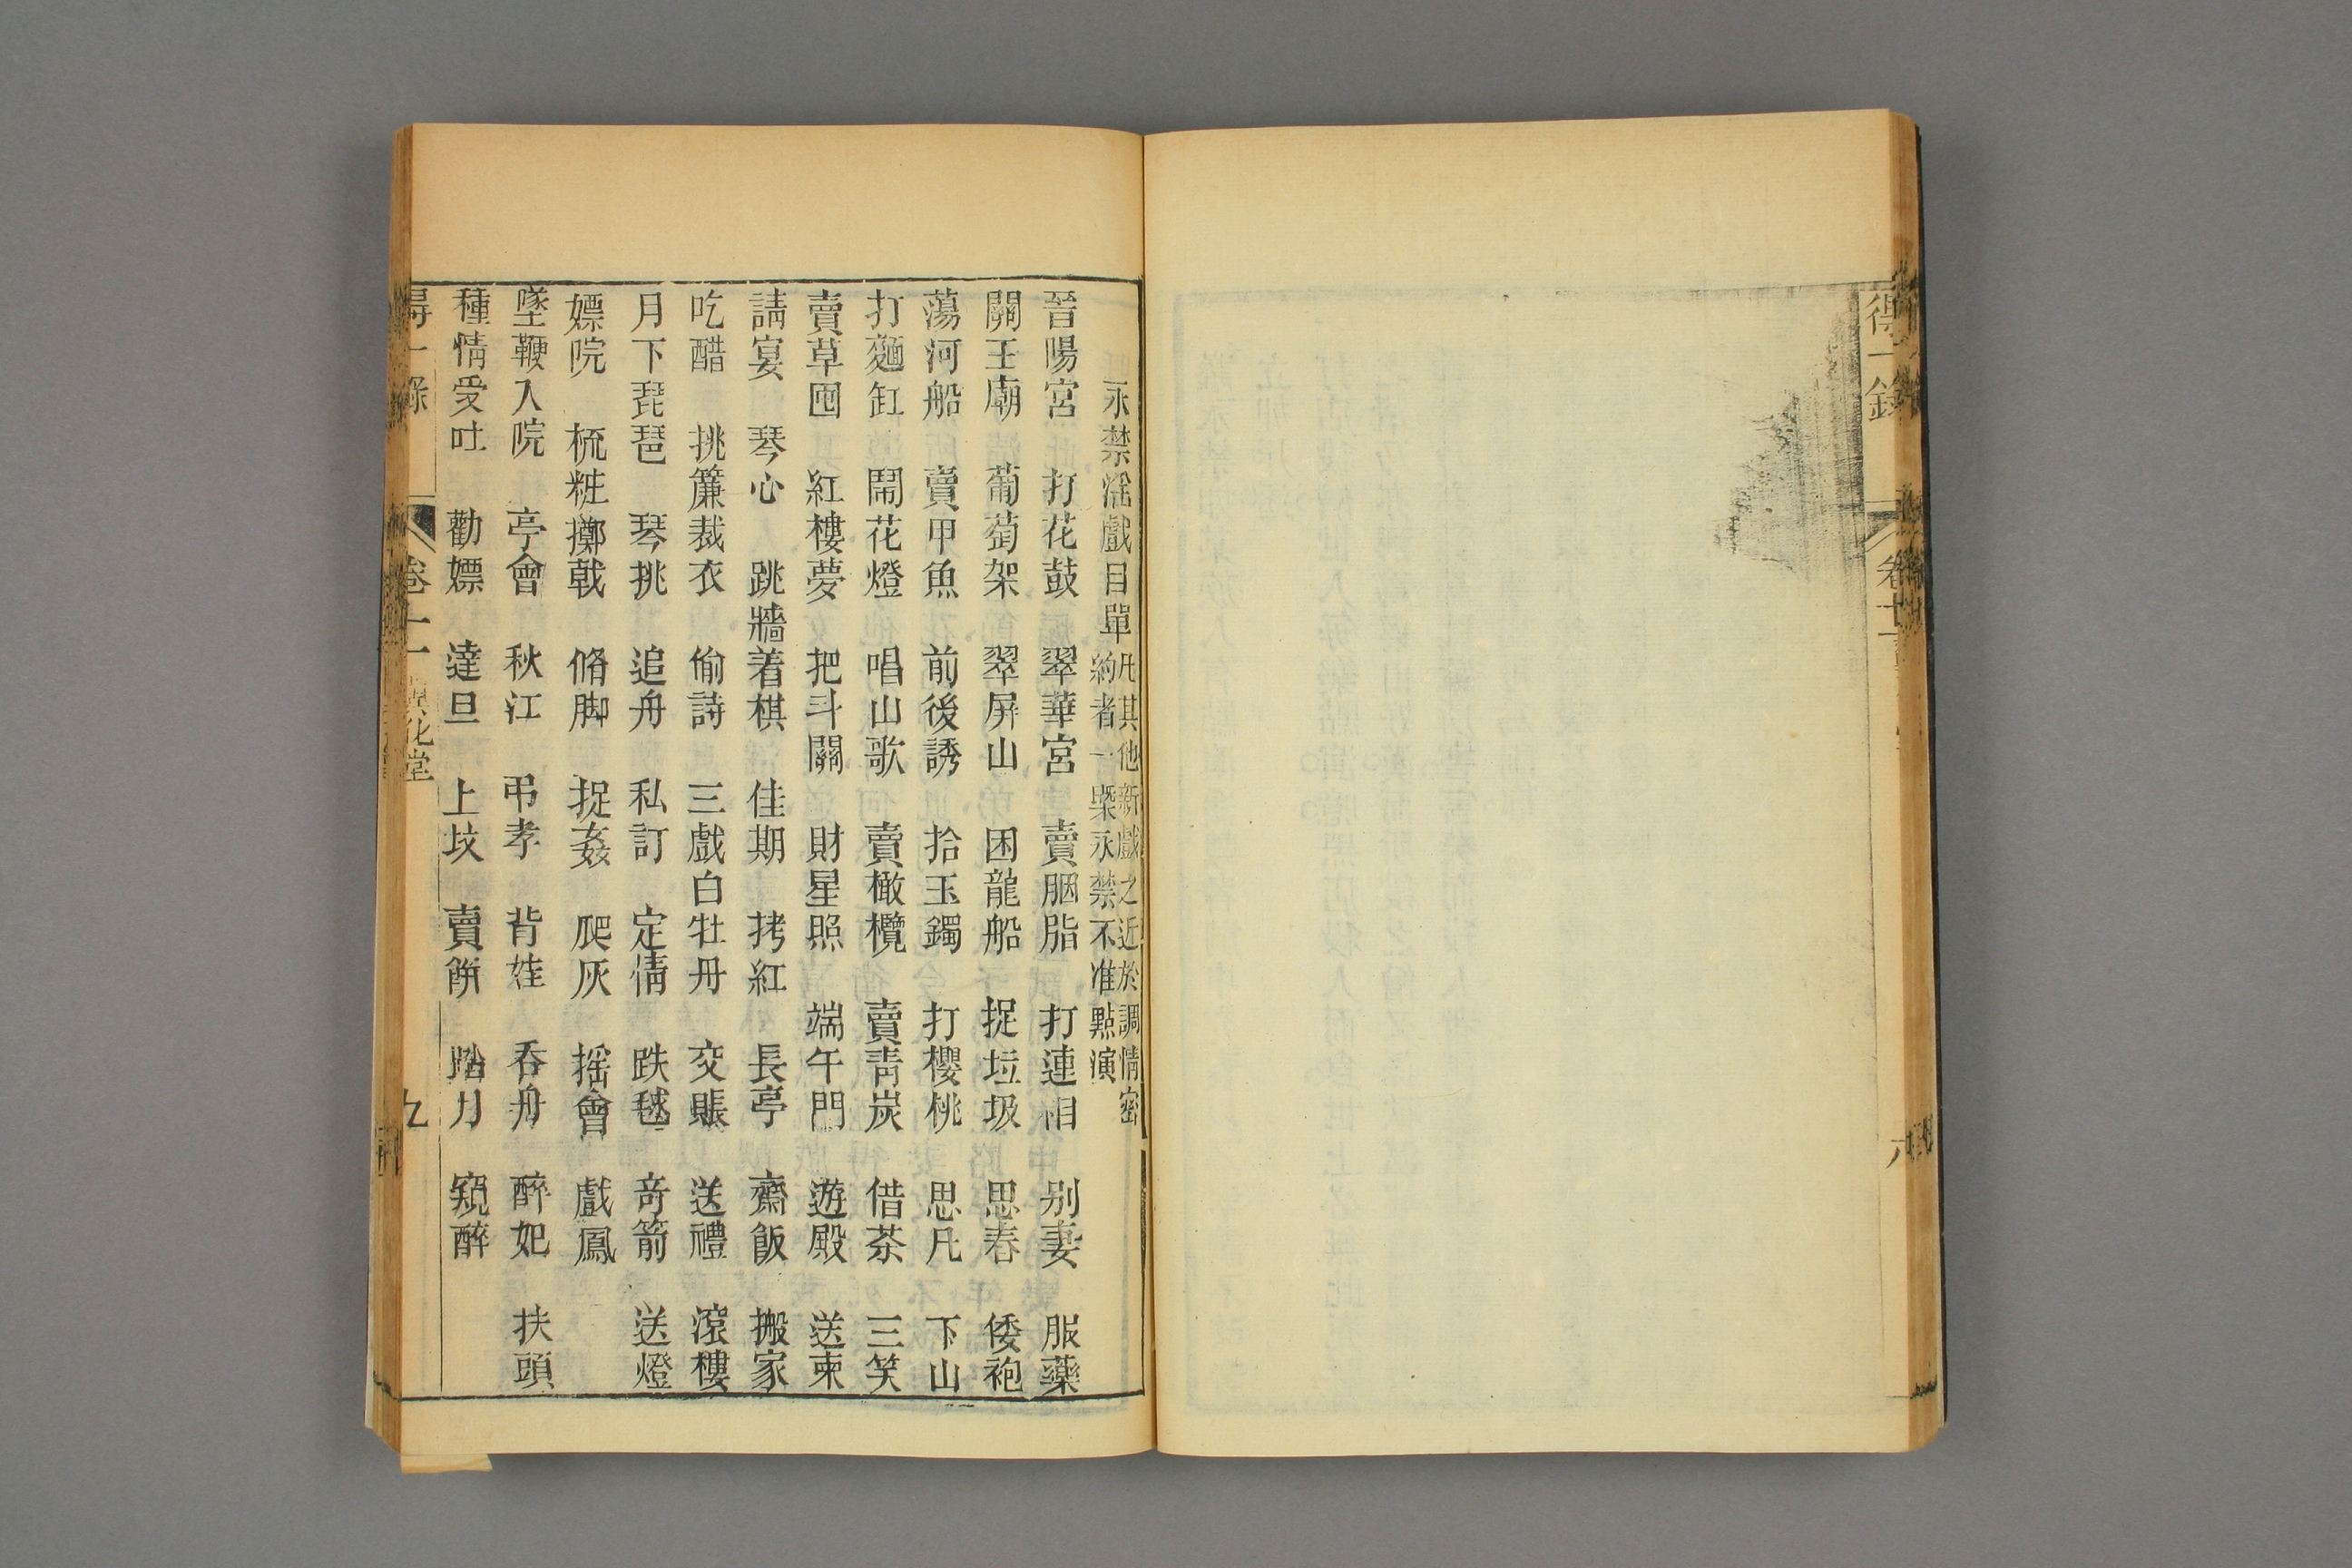 得一錄
卷十一
永禁淫戲目單
凡其他新戲之近於調情密
約者一槩永禁不准點演
晉陽宮 打花鼓 翠華宮 賣胭脂 打連相 別妻 服藥
關王廟 葡萄架 翠屏山 困龍船 捉垃圾 思春 倭袍
蕩河船 賣甲魚 前後誘 拾玉鐲 打櫻桃 思凡 下山
打麵缸 鬧花燈 唱山歌 賣橄欖 賣青炭 借茶 三笑
賣草囤 紅樓夢 把斗關 財星照 端午門 遊殿 送柬
請宴 琴心 跳牆着棋 佳期 拷紅 長亭 齋飯 搬家
吃醋 挑簾裁衣 偷詩 三戲白牡丹 交賬 送禮 滾樓
月下琵琶 琴挑 追舟 私訂 定情 跌毬 奇箭 送燈
嫖院 梳粧擲戟 脩脚 捉姦 爬灰 搖會 戲鳳
墜鞭入院 亭會 秋江 弔孝 背娃 吞舟 醉妃 扶頭
種情受吐 勸嫖 達旦 上坟 賣餅 踏月 窺醉
得一錄
卷十一
九